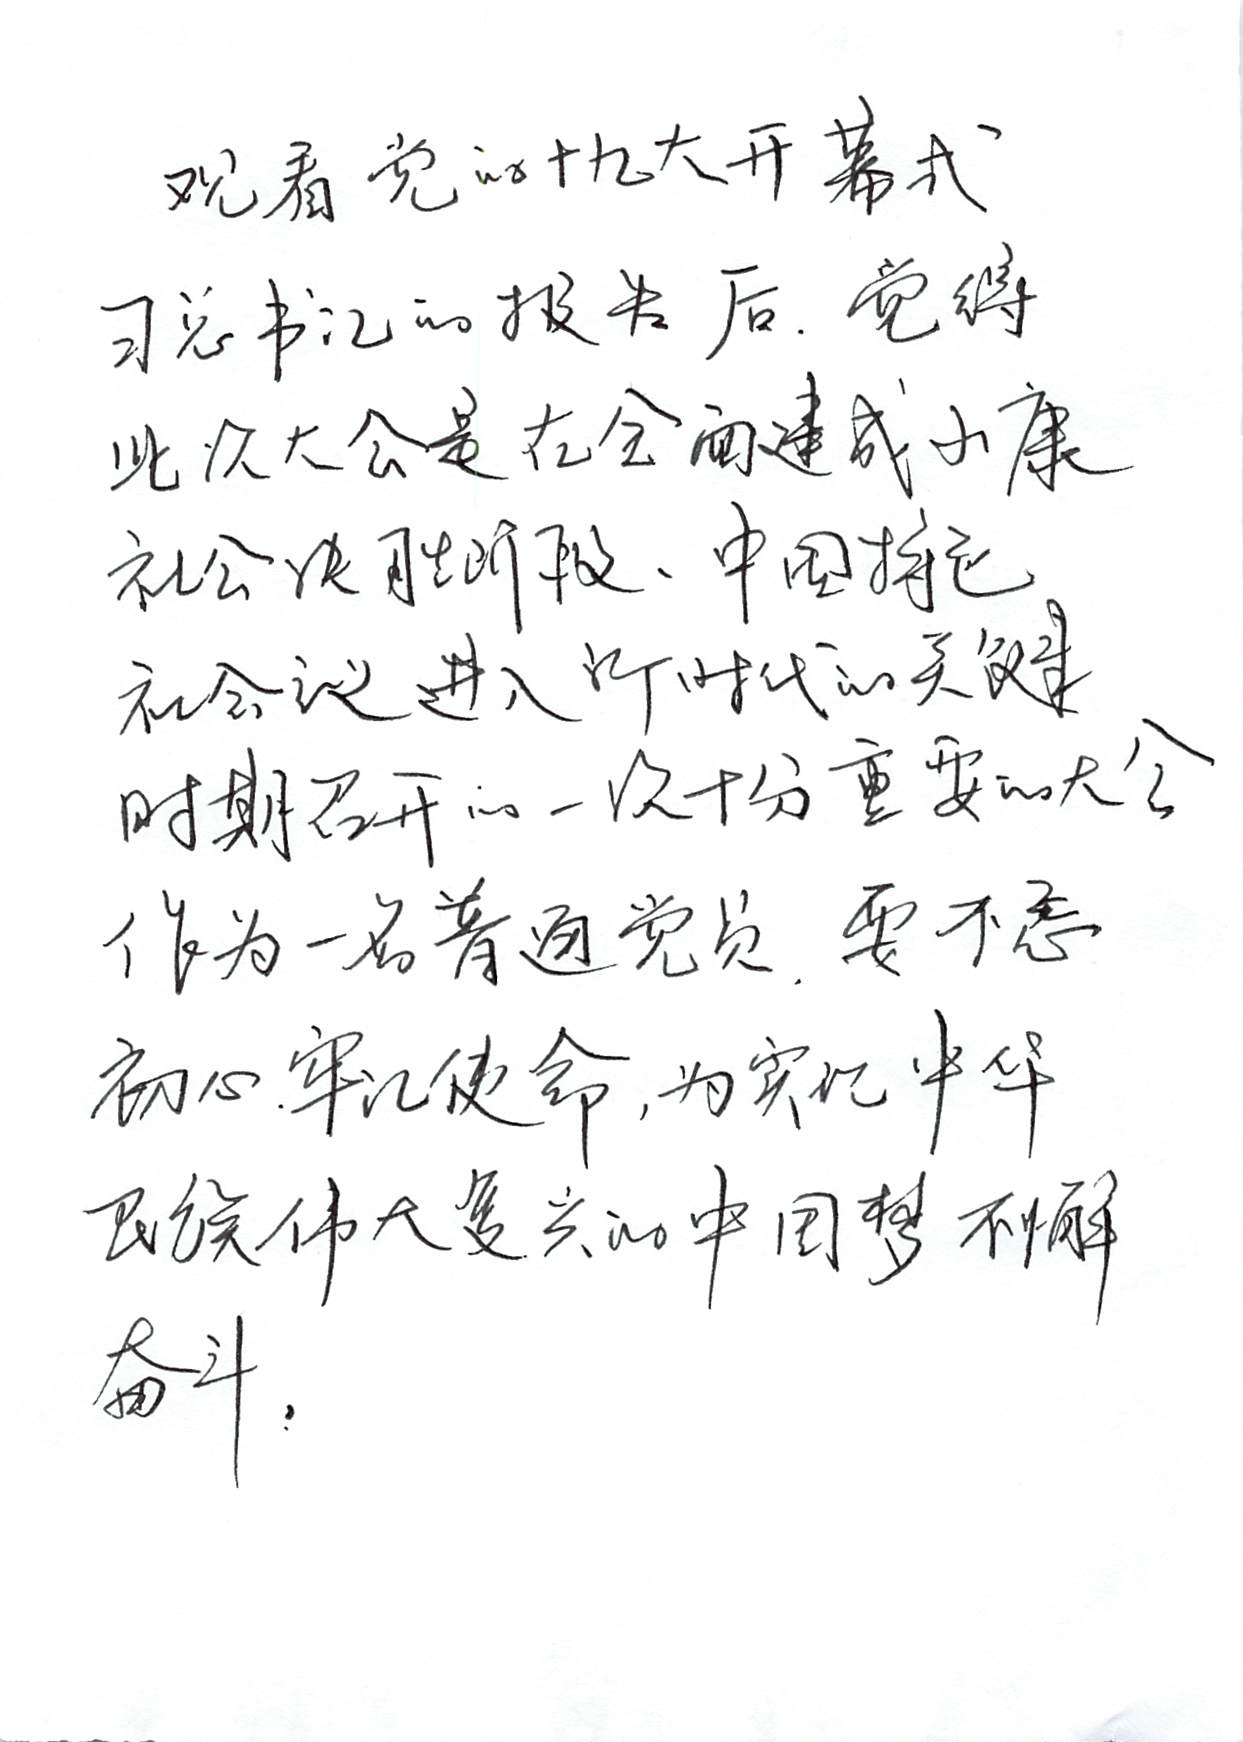 观看党的十九大开幕式
习总书记的报告后.觉得
此次大会是在全面建成小康
社会决胜阶段、中国特色
社会议进入新时代的关键
时期召开的一次十分重要的大会
作为一名普通党员.要不忘
初心.牢记使命,为实现中华
民族伟大复兴的中国梦不懈
奋斗.